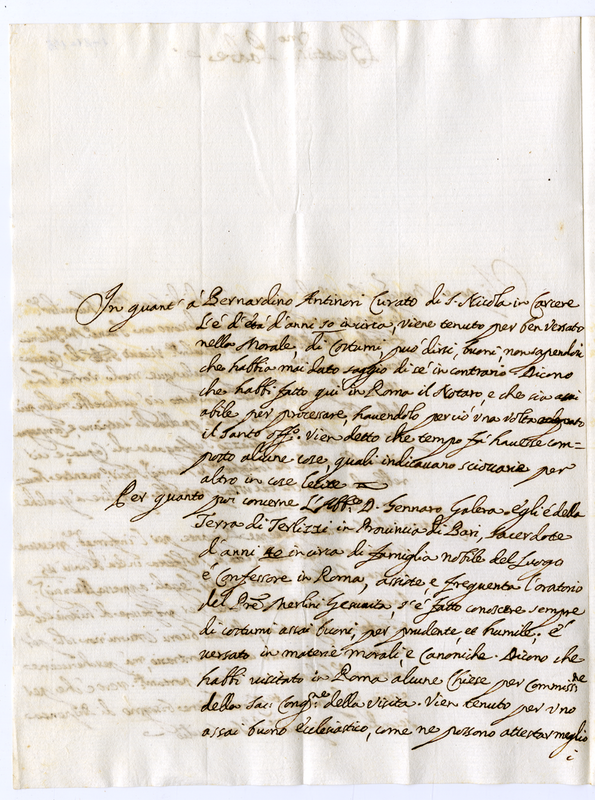 In quant' à Bernardino Antinori Curato di S. Nicola in Carcere
Lé d'età d'anni 50 incirca, viene tenuto per ben versato
nella Morale, di Costumi, può dirsi, buoni, non sapendosi
che habbia mai dato saggio di sé in contrario. Dicono
che habbi fatto quì in Roma il Notaro, e che sia assai
abile per processare, havendolo perciò una volta adoprato
il Santo Off.o Vien detto che tempo fà havesse com=
posto alcune cose, quali indicavano scioccarie per
altro in cose lecite
Per quanto poi concerne L'Abb.e D. Gennaro Galera, egli é della
Terra di Terlizzi in Provincia di Bari, Sacerdote
d'anni 40 incirca di famiglia nobile del Luogo
é Confessore in Roma, assiste, e frequenta l'oratorio
del Pre Merlini Gesuita, s'é fatto conoscere sempre
di costumi assai buoni, per prudente, et humile. é
versato in materie morali, e Canoniche. Dicono che
habbi visitato in Roma alcune Chiese per Commiss.ne
della Sac. Cong.ne della Visita. Vien tenuto per uno
assai buono ecclesiastico, come ne possono attestar meglio
i